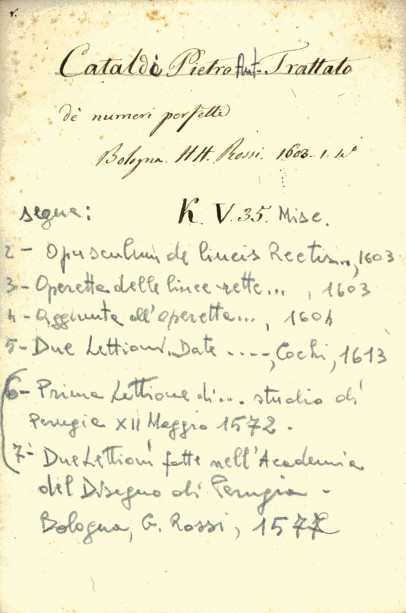 Cataldi Pietro Ant. Trattato
de numeri perfetti
Bologna HH. Rossi. 1603. 1. 4°
segue: K. V. 35. Misc.
2 - Opusculum de lineis Rectis..., 1603
3 - Operetta delle linee rette... , 1603
4 - Aggiunta all'operetta..., 1604
5 - Due Lettioni.. Date ...., Cochi, 1613
6 - Prima Lettione di... studio di
Perugia XII Maggio 1572.
7 - Due Lettioni fatte nell'Academia
del Disegno di Perugia -
Bologna, G. Rossi, 1577